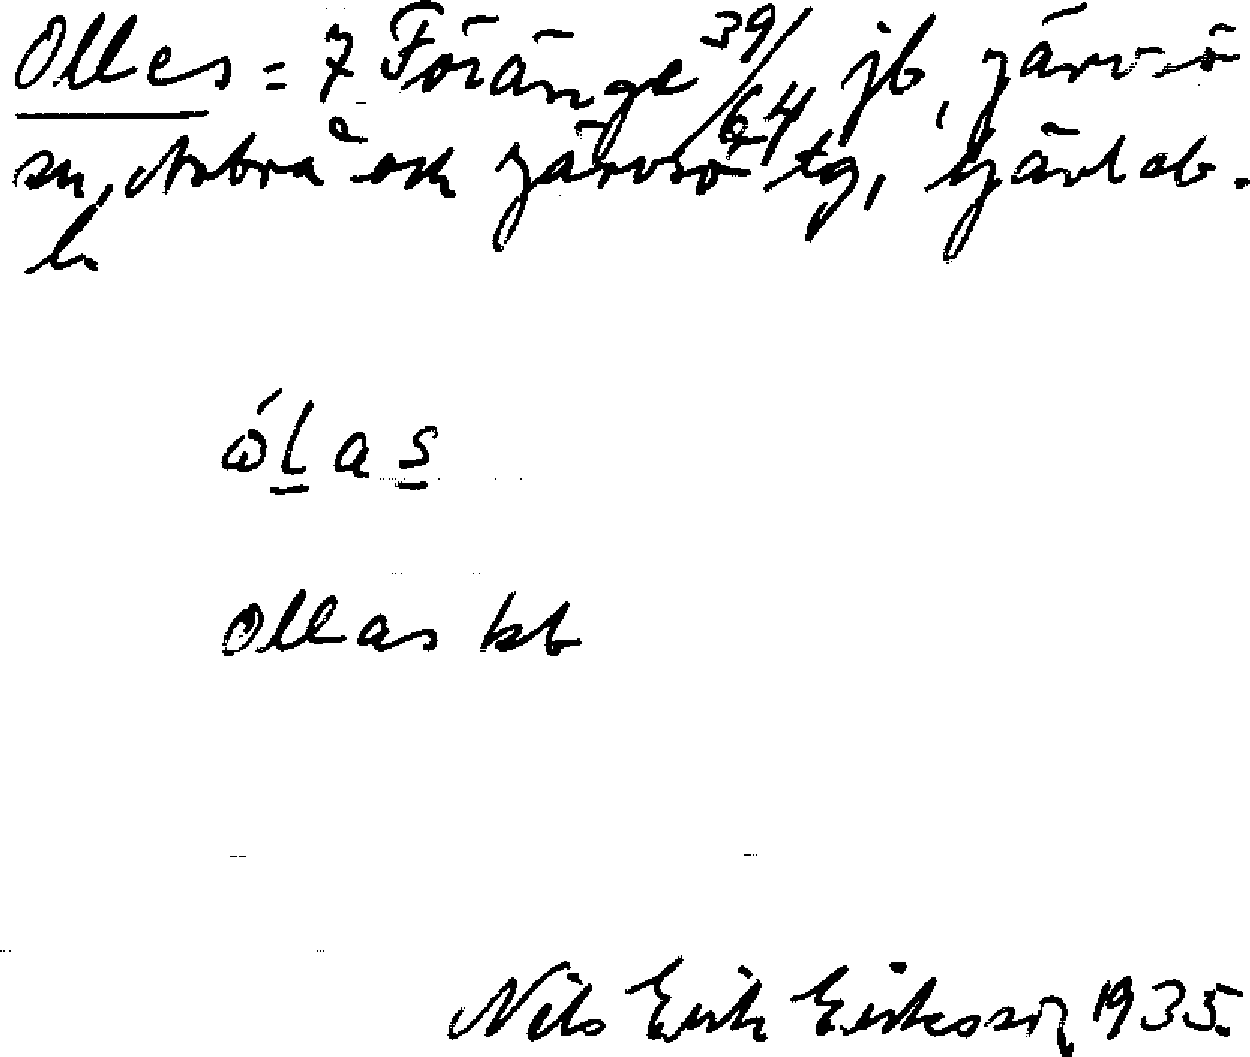 Olles = 7 Föränge 39/64 jb, Järvsö
sn, Arbrå och Järvsö tg, Gävleb.
l.
ólas
Ollas kb
Nils Erik Eriksson 1935.